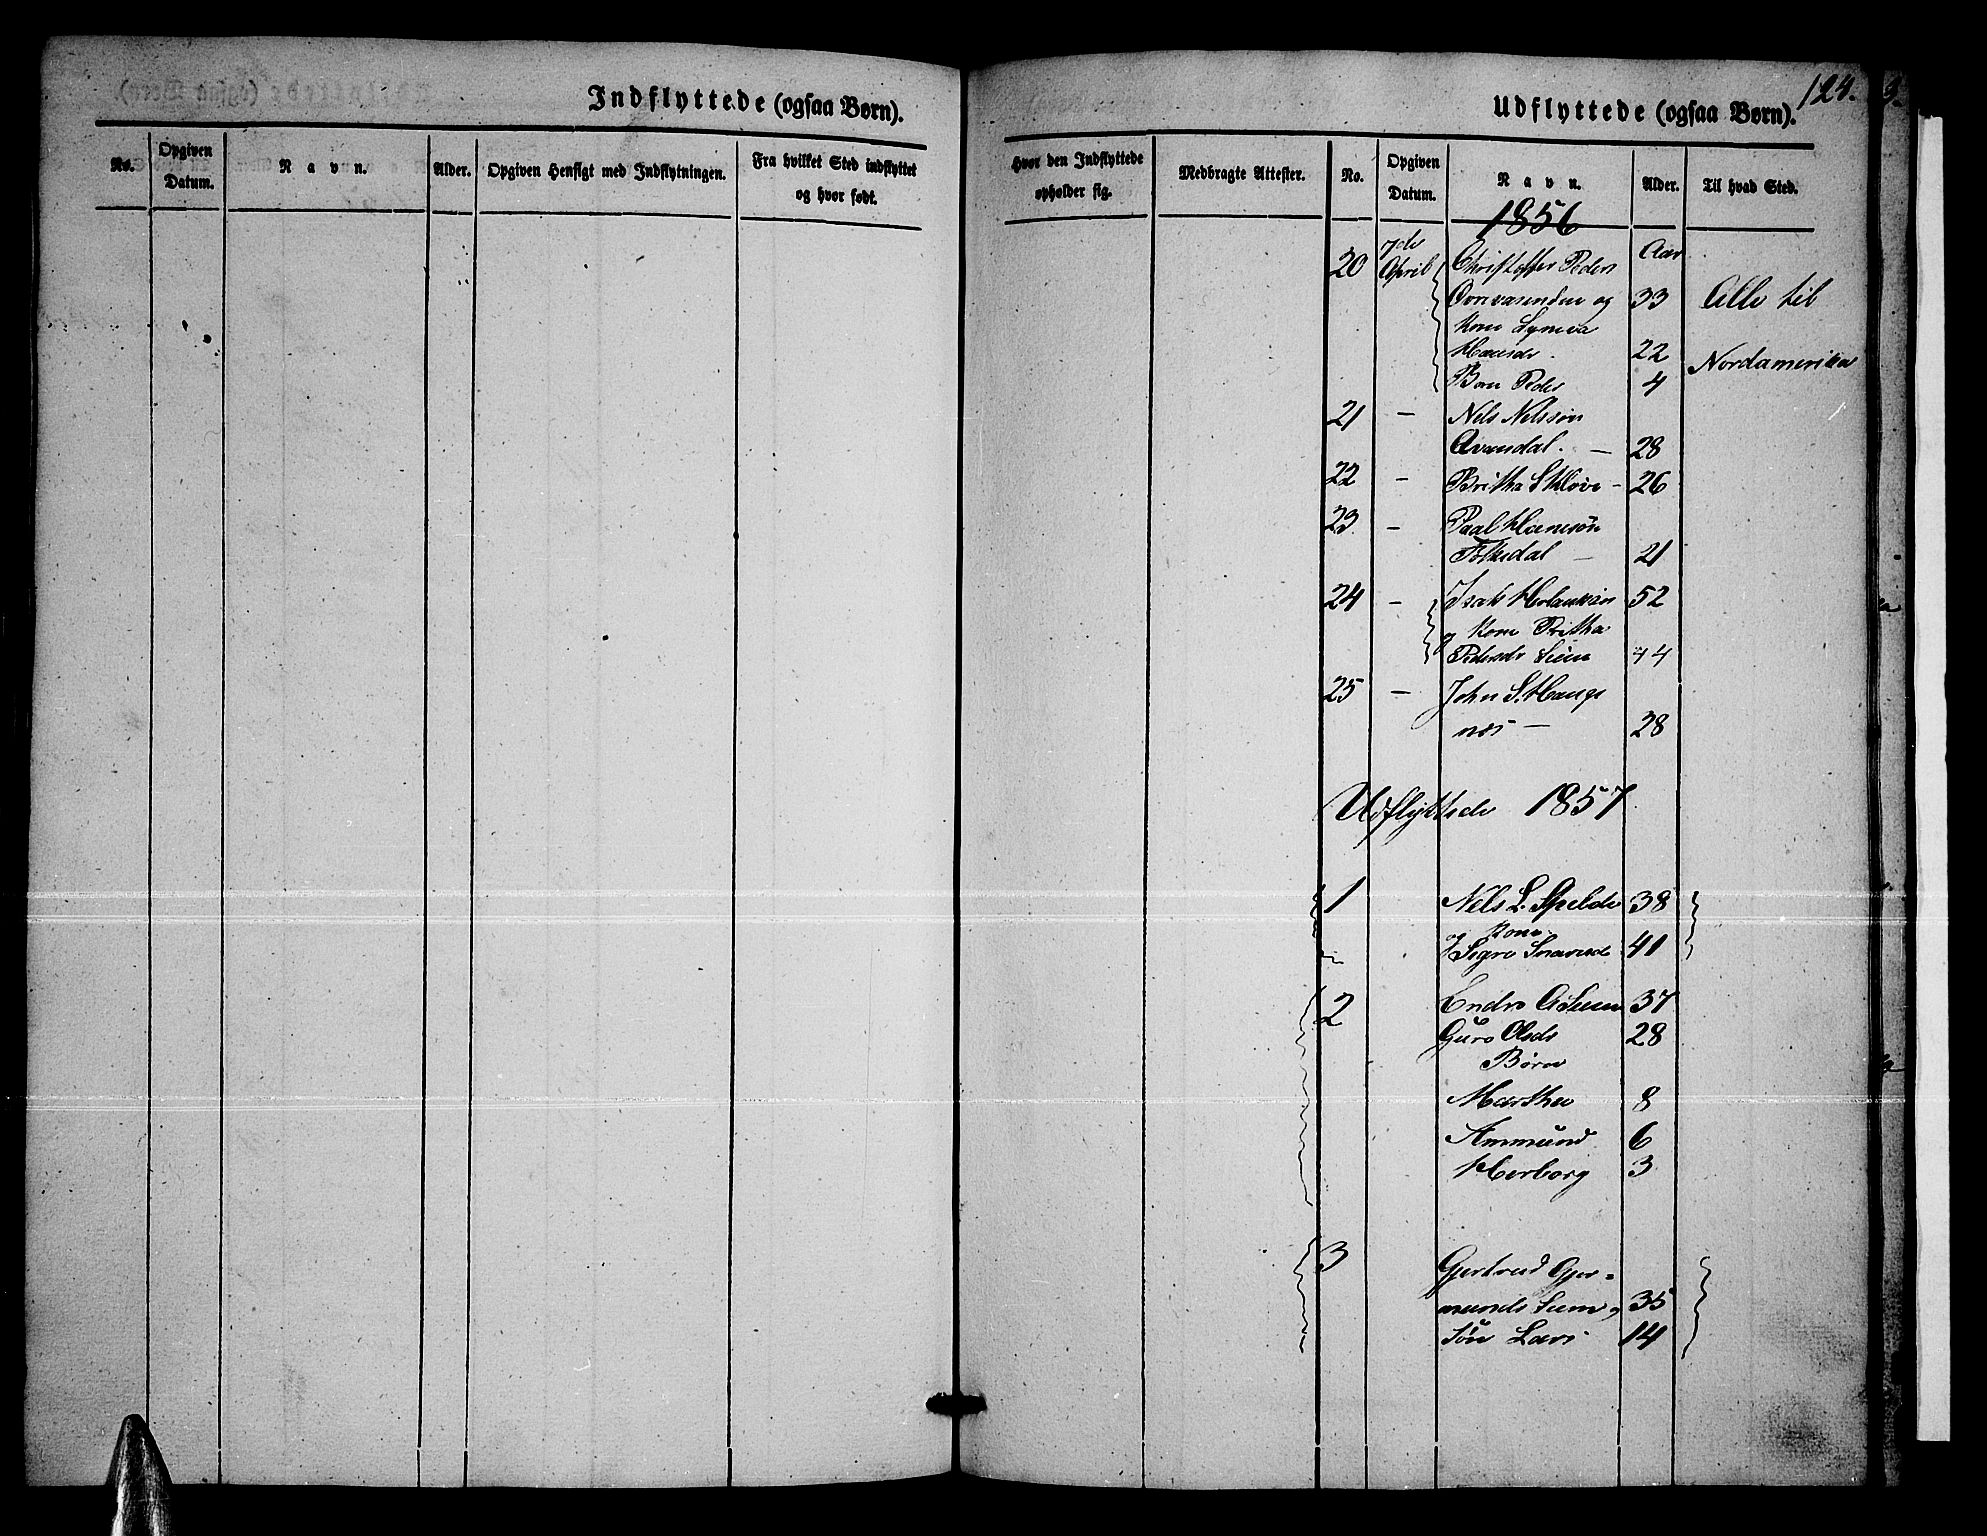 Indflyttede (ogsaa Børn).
No.
Opgiven Datum.
Navn.
Alder.
Opgiven Hensigt med Indflytningen.
Fra hvilket Sted indflyttet og hvor født.
124.
Udflyttede (ogsaa Børn).
Hvor den Indflyttede opholder sig.
Medbragte Attester.
No.
Opgiven Datum.
Navn.
Alder.
Til hvad Sted.
1856
20 7de April Christoffer Peders Aar
og 33 Alle til
Kone
22 Nordamerika
Barn Peder 4
21 — Nels Nelssøn
28
22 — Britha 26
23 — Paal Hansøn
Folkedal — 21
24 — Isak 52
og Kone Britha
Pedersdr 44
25 — John S. Haugs
nes — 28
Udflyttede 1857
1 Nels L. Spelde 38
Kone
og Sigrv 41
2 Endre 37
Guro Olsdr 28
Børn
Martha 8
Ammund 6
Herborg 3
3 Gjertrud Gjer=
munds 35
Søn Lars 14